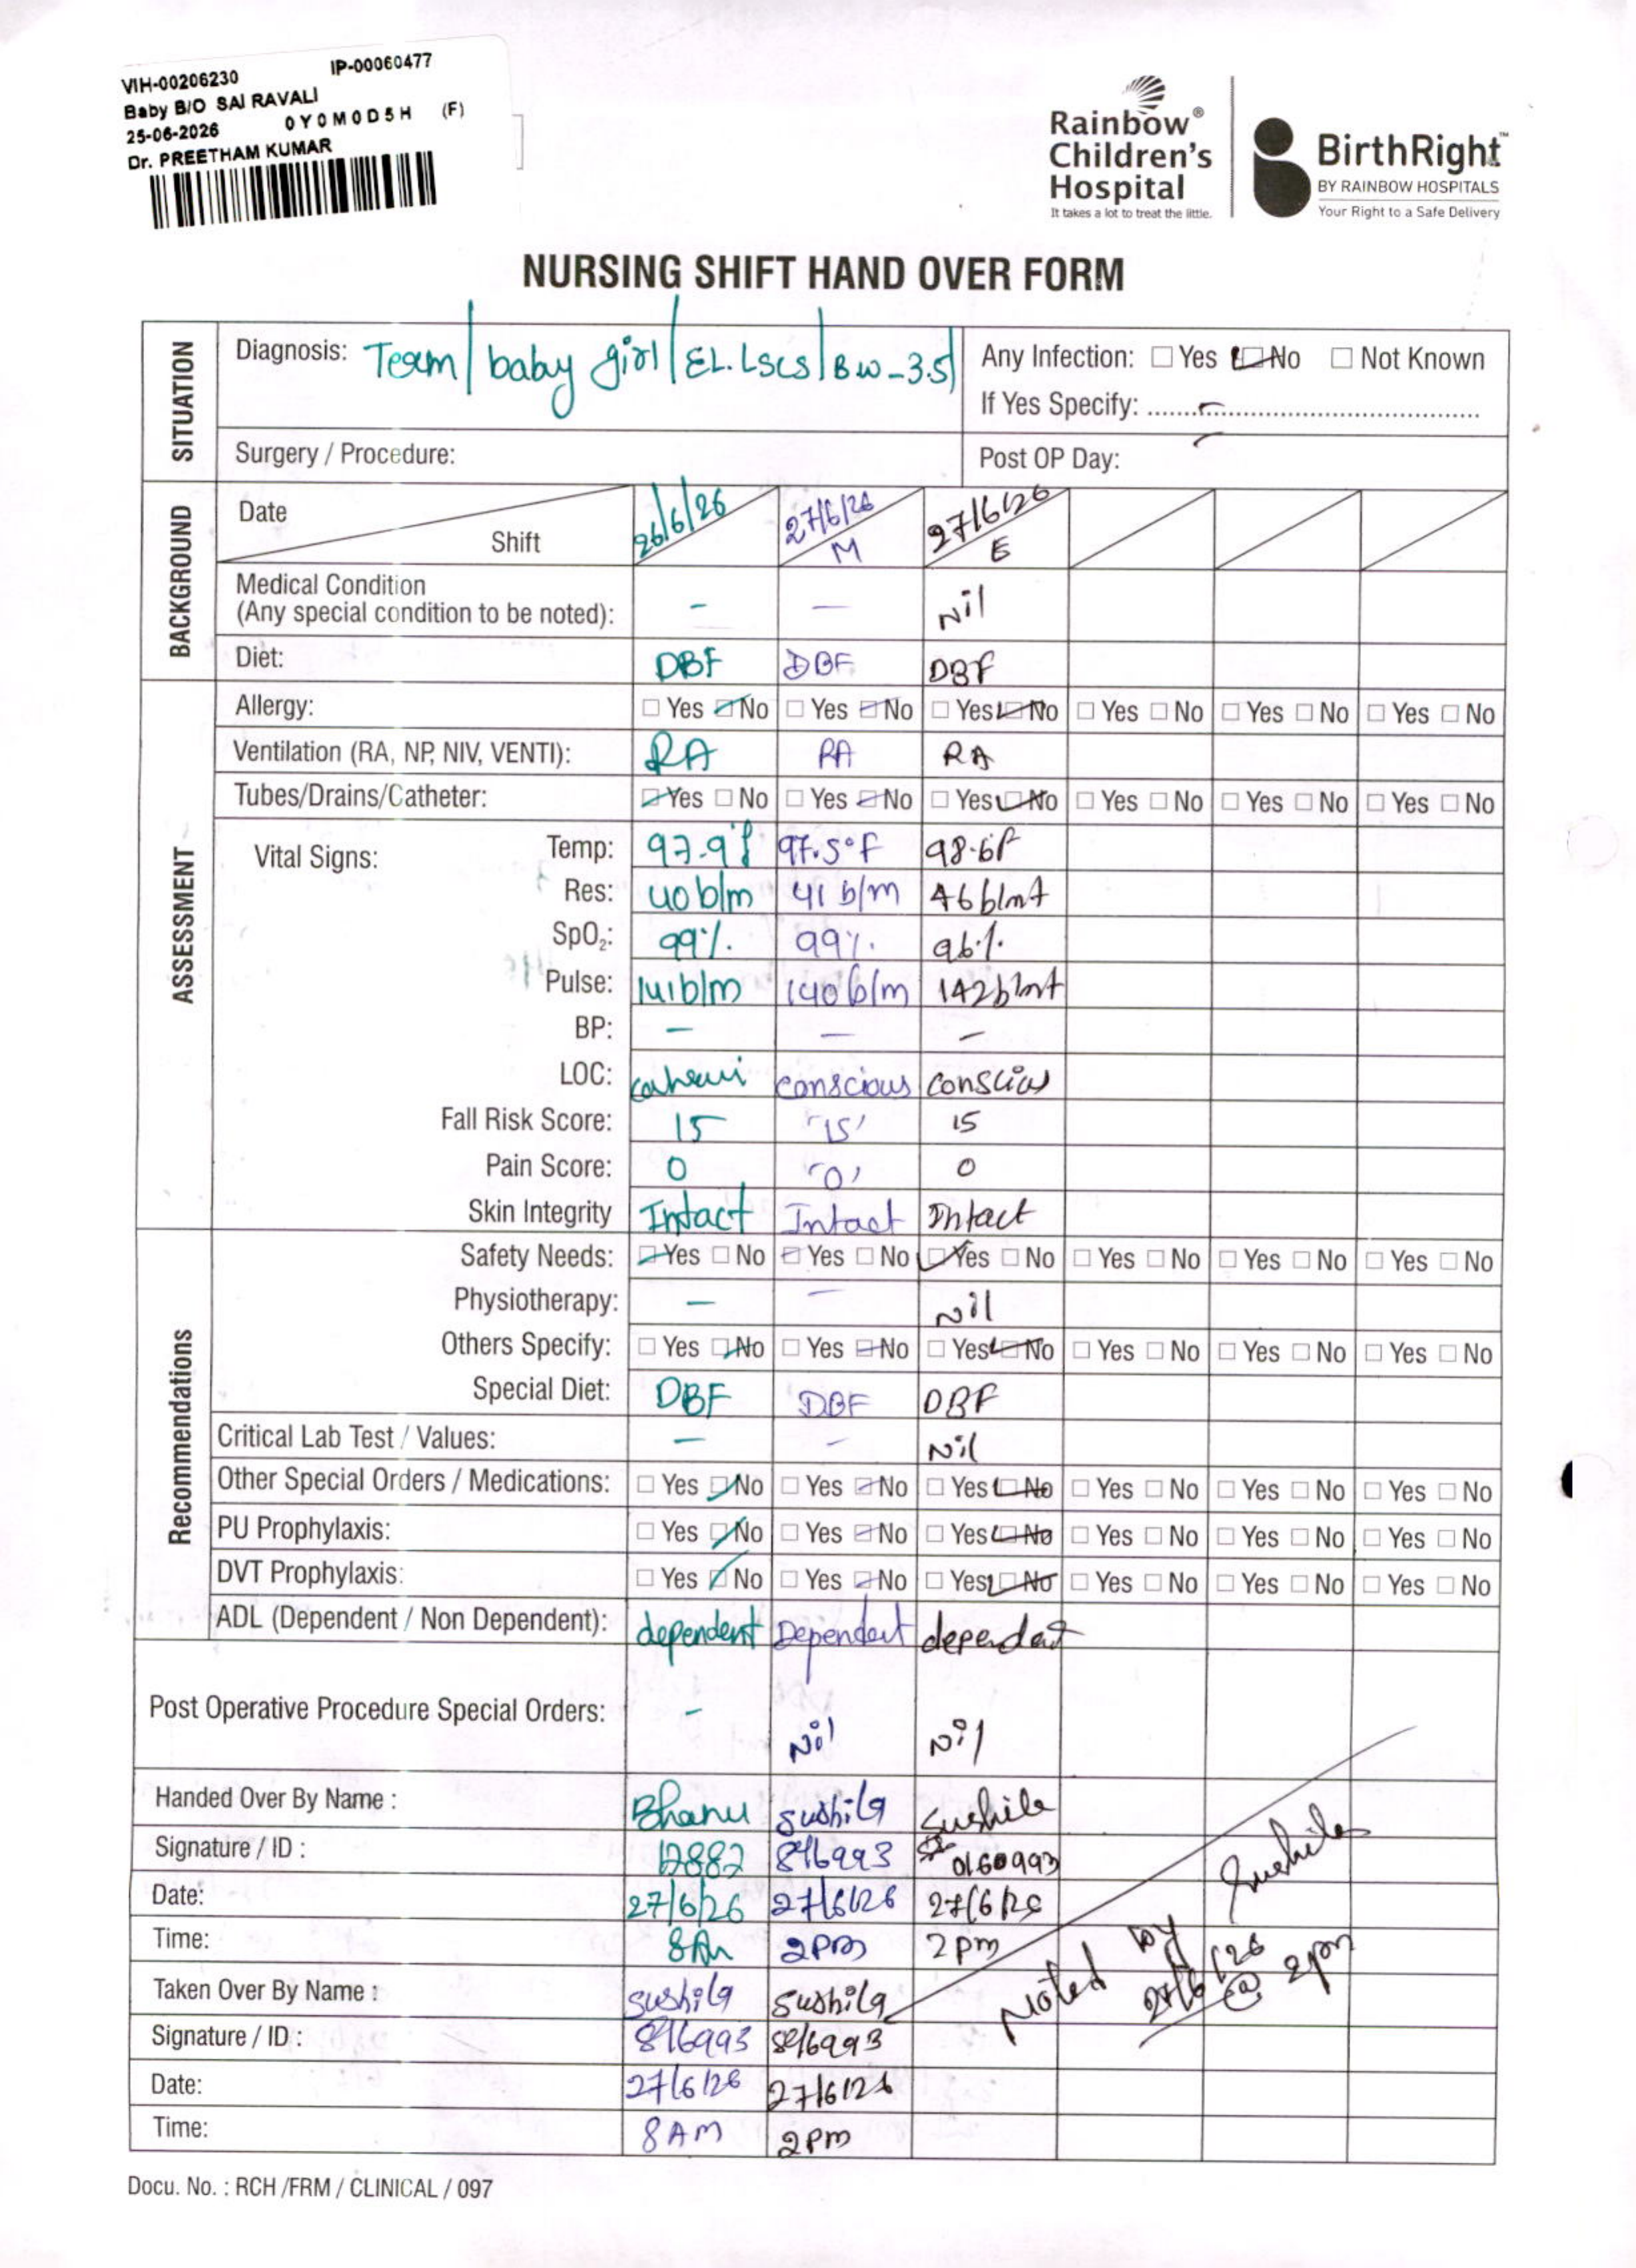 VIH-00206230 IP-00060477
Baby B/O SAI RAVALI
25-06-2026 0Y0M0D5H (F)
Dr. PREETHAM KUMAR
Rainbow®
Children's
Hospital
It takes a lot to treat the little.
BirthRight™
BY RAINBOW HOSPITALS
Your Right to a Safe Delivery
NURSING SHIFT HAND OVER FORM
SITUATION
Diagnosis: Team/ baby girl/ EL.LSCS/ BW-3.5/
Any Infection: ☐ Yes ☑ No ☐ Not Known
If Yes Specify: ..........
Surgery / Procedure:
Post OP Day: -
BACKGROUND
Date Shift 26/6/26 27/6/26 M 27/6/26 E
Medical Condition
(Any special condition to be noted): - - Nil
Diet: DBF DBF DBF
ASSESSMENT
Allergy: ☐ Yes ☑ No ☐ Yes ☑ No ☐ Yes ☑ No ☐ Yes ☐ No ☐ Yes ☐ No ☐ Yes ☐ No
Ventilation (RA, NP, NIV, VENTI): RA RA RA
Tubes/Drains/Catheter: ☑ Yes ☐ No ☐ Yes ☑ No ☐ Yes ☑ No ☐ Yes ☐ No ☐ Yes ☐ No ☐ Yes ☐ No
Vital Signs: Temp: 97.9°f 97.5°F 98.6F
Res: 40 b/m 41 b/m 46 b/mt
SpO₂: 99% 99% 96%
Pulse: 141b/m 140 b/m 142b/mt
BP: - - -
LOC: conscious conscious
Fall Risk Score: 15 "15" 15
Pain Score: 0 "0" 0
Skin Integrity Intact Intact Intact
Recommendations
Safety Needs: ☑ Yes ☐ No ☑ Yes ☐ No ☑ Yes ☐ No ☐ Yes ☐ No ☐ Yes ☐ No ☐ Yes ☐ No
Physiotherapy: - - Nil
Others Specify: ☐ Yes ☑ No ☐ Yes ☑ No ☐ Yes ☑ No ☐ Yes ☐ No ☐ Yes ☐ No ☐ Yes ☐ No
Special Diet: DBF DBF DBF
Critical Lab Test / Values: - - Nil
Other Special Orders / Medications: ☐ Yes ☑ No ☐ Yes ☑ No ☐ Yes ☑ No ☐ Yes ☐ No ☐ Yes ☐ No ☐ Yes ☐ No
PU Prophylaxis: ☐ Yes ☑ No ☐ Yes ☑ No ☐ Yes ☑ No ☐ Yes ☐ No ☐ Yes ☐ No ☐ Yes ☐ No
DVT Prophylaxis: ☐ Yes ☑ No ☐ Yes ☑ No ☐ Yes ☑ No ☐ Yes ☐ No ☐ Yes ☐ No ☐ Yes ☐ No
ADL (Dependent / Non Dependent): dependent Dependent dependent
Post Operative Procedure Special Orders: - Nil Nil
Handed Over By Name : Bhanu sushila Sushila
Signature / ID : 12882 816993 0160993
Date: 27/6/26 27/6/26 27/6/26
Time: 8Am 2PM 2pm
Taken Over By Name : sushila sushila
Signature / ID : 816993 816993
Date: 27/6/26 27/6/26
Time: 8AM 2PM
Noted by Sushila
27/6/26 @ 2pm
Docu. No. : RCH /FRM / CLINICAL / 097